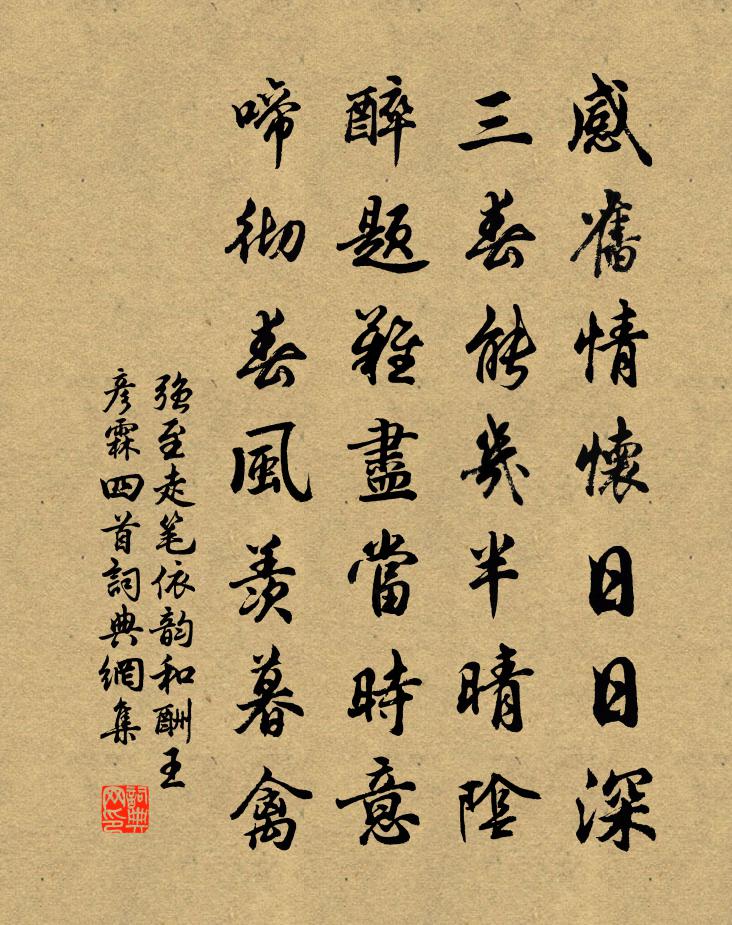 感舊情懷日日深
三春能幾半晴陰
醉題難盡當時意
啼彻春風羨暮禽
强至走笔依韵和酬王
彦霖四首詞典網集
詞典网印